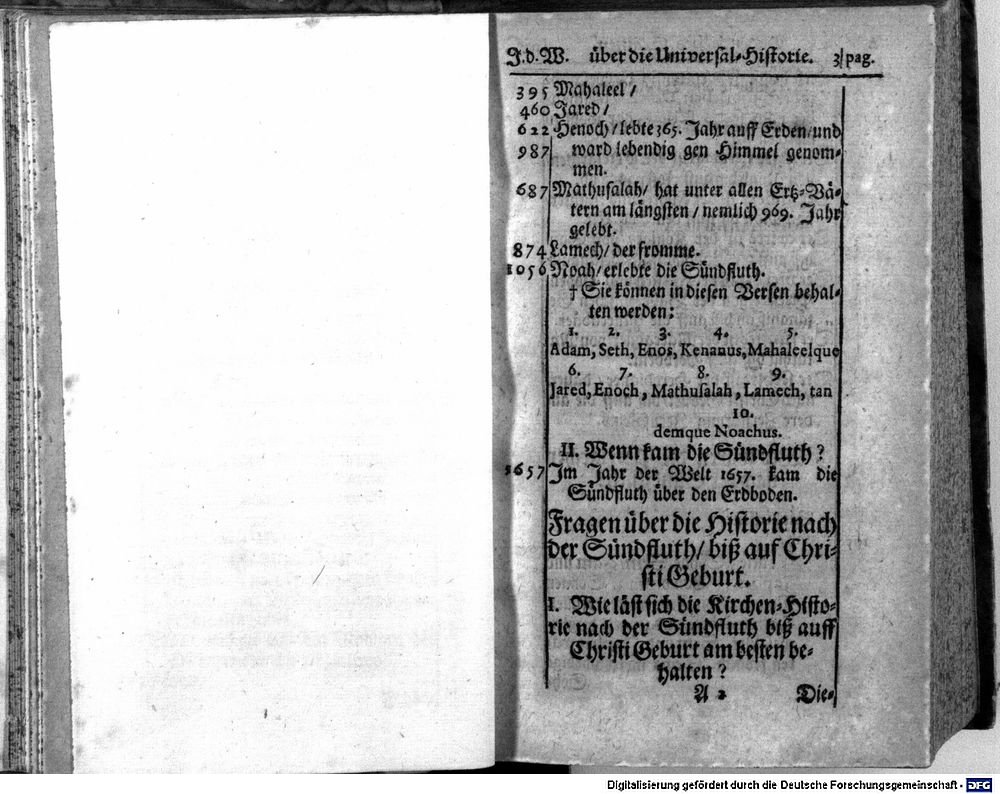 J.d.W. über die Universal-Historie. 3 pag.
395 Mahaleel /
460 Jared /
622 Henoch / lebte 365. Jahr auff Erden / und
987 ward lebendig gen Himmel genom-
men.
687 Mathusalah / hat unter allen Ertz-Vä-
tern am längsten / nemlich 969. Jahr
gelebt.
874 Lamech / der fromme.
1056 Noah / erlebte die Sündfluth.
† Sie können in diesen Versen behal-
ten werden:
1. 2. 3. 4. 5.
Adam, Seth, Enos, Kenanus, Mahaleelque
6. 7. 8. 9.
Jared, Enoch, Mathusalah, Lamech, tan
10.
demque Noachus.
II. Wenn kam die Sündfluth?
1657 Im Jahr der Welt 1657. kam die
Sündfluth über den Erdboden.
Fragen über die Historie nach
der Sündfluth / biß auf Chri-
sti Geburt.
I. Wie läst sich die Kirchen-Histo-
rie nach der Sündfluth biß auff
Christi Geburt am besten be-
halten?
A 2 Die-
Digitalisierung gefördert durch die Deutsche Forschungsgemeinschaft - DFG